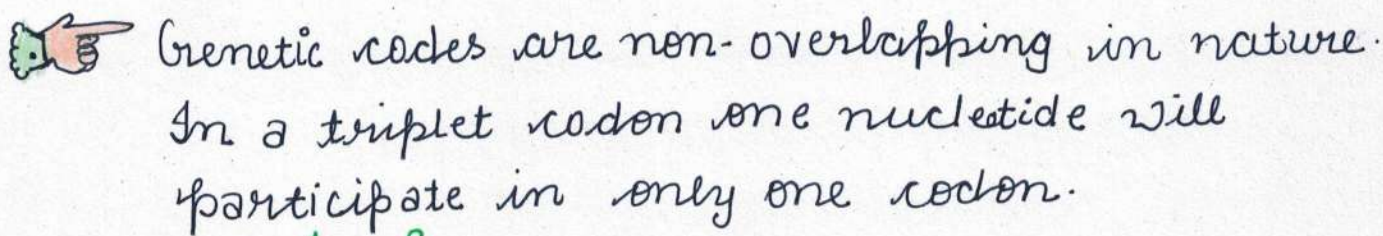 Genetic codes are non-overlapping in nature.
In a triplet codon one nucleotide will
participate in only one codon.